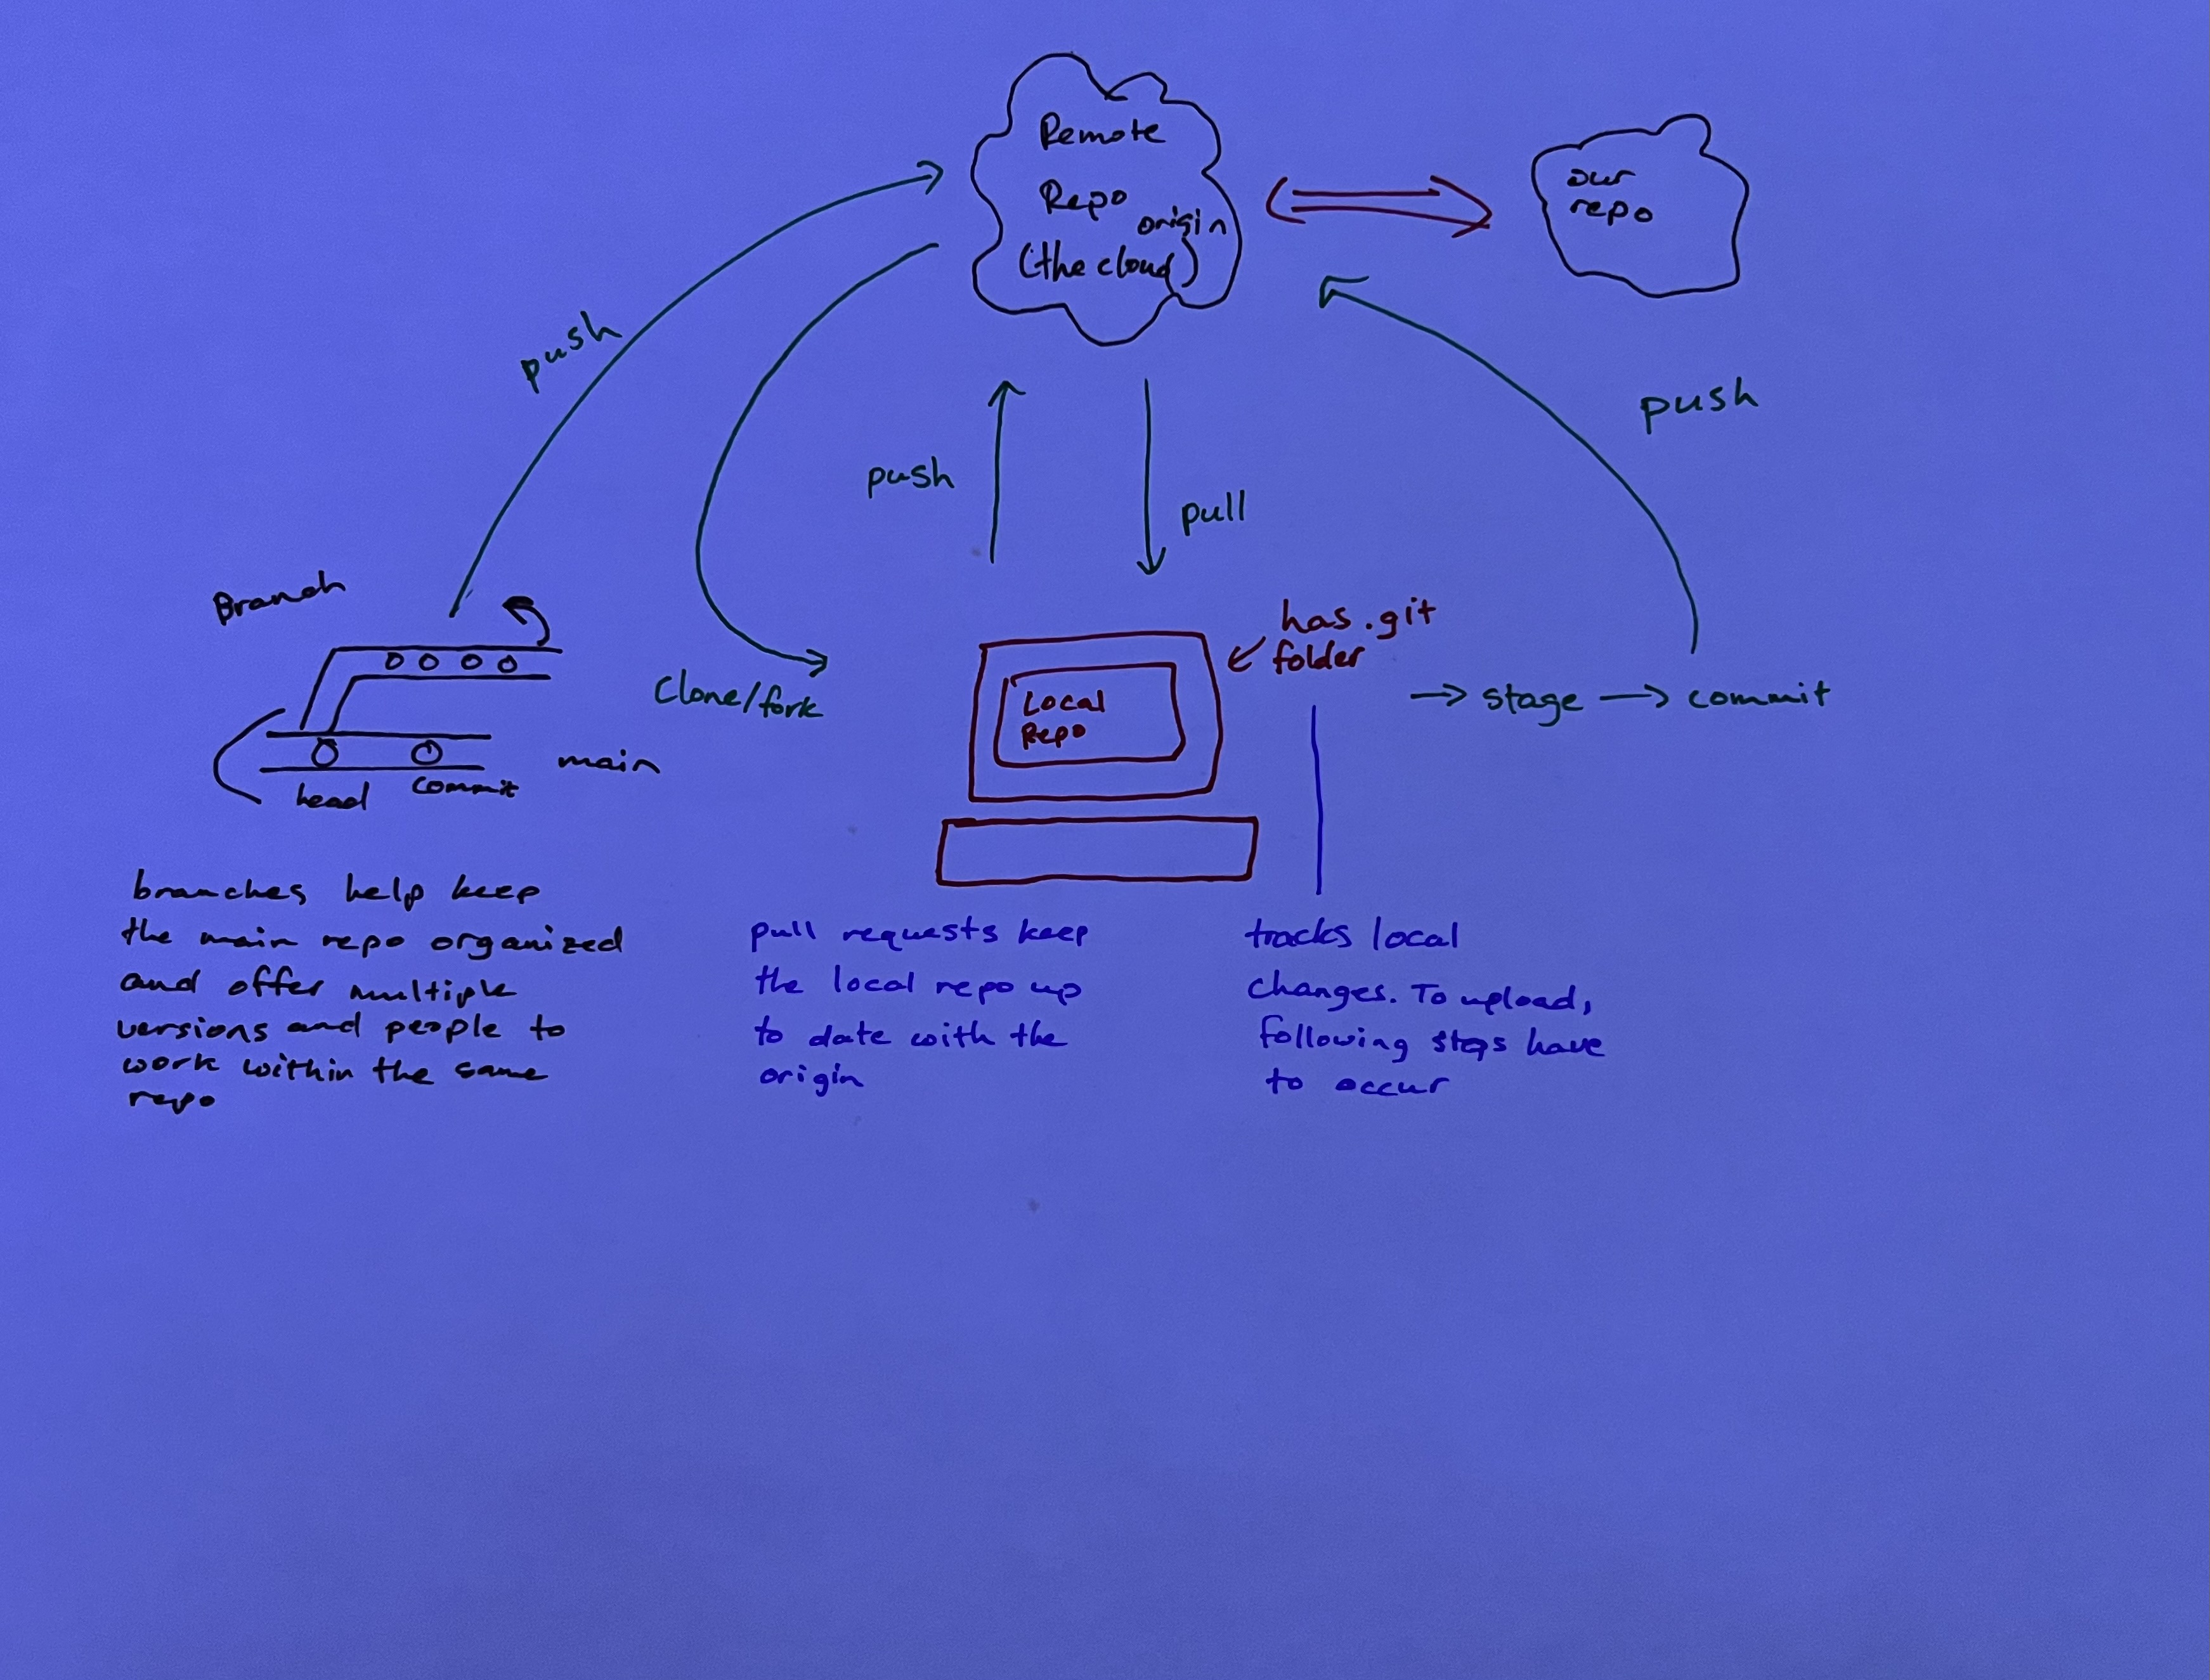 Remote
Repo
origin
(the cloud)
our
repo
push
push
pull
push
Branch
has .git
folder
Clone/fork
Local
Repo
→ stage → commit
main
head
commit
branches help keep
the main repo organized
and offer multiple
versions and people to
work within the same
repo
pull requests keep
the local repo up
to date with the
origin
tracks local
changes. To upload,
following steps have
to occur